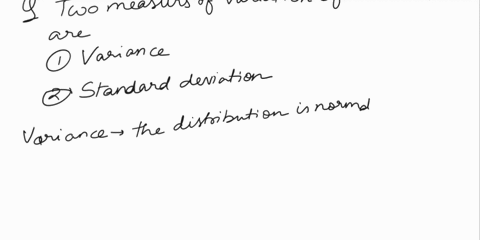 Q Two measurs of variation of
are
① Variance
② Standard deviation
Variance → the distribution is normal